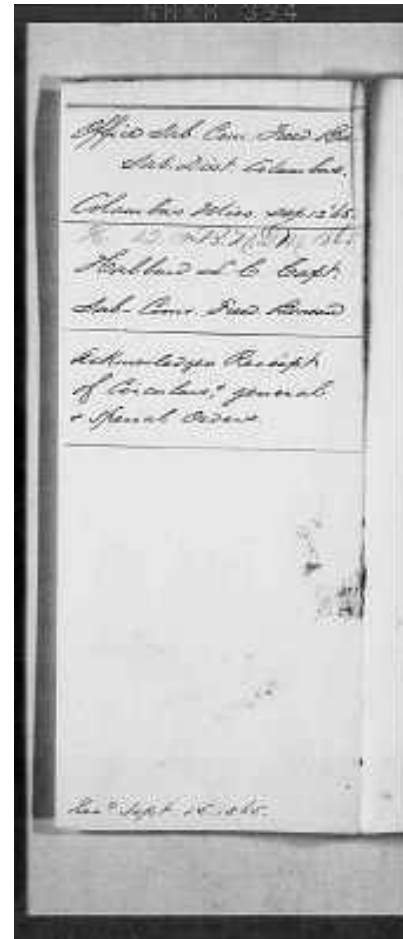 Office Sub Com Freed Bu
Sub. Dist. Columbus.
Columbus Miss. Sep 12 '65.
Hubbard L C Capt.
Sub. Comr. Freed. Bureau
Acknowledges Receipt
of Circulars, general
& Special Orders.
Recd Sept 15. 1865.